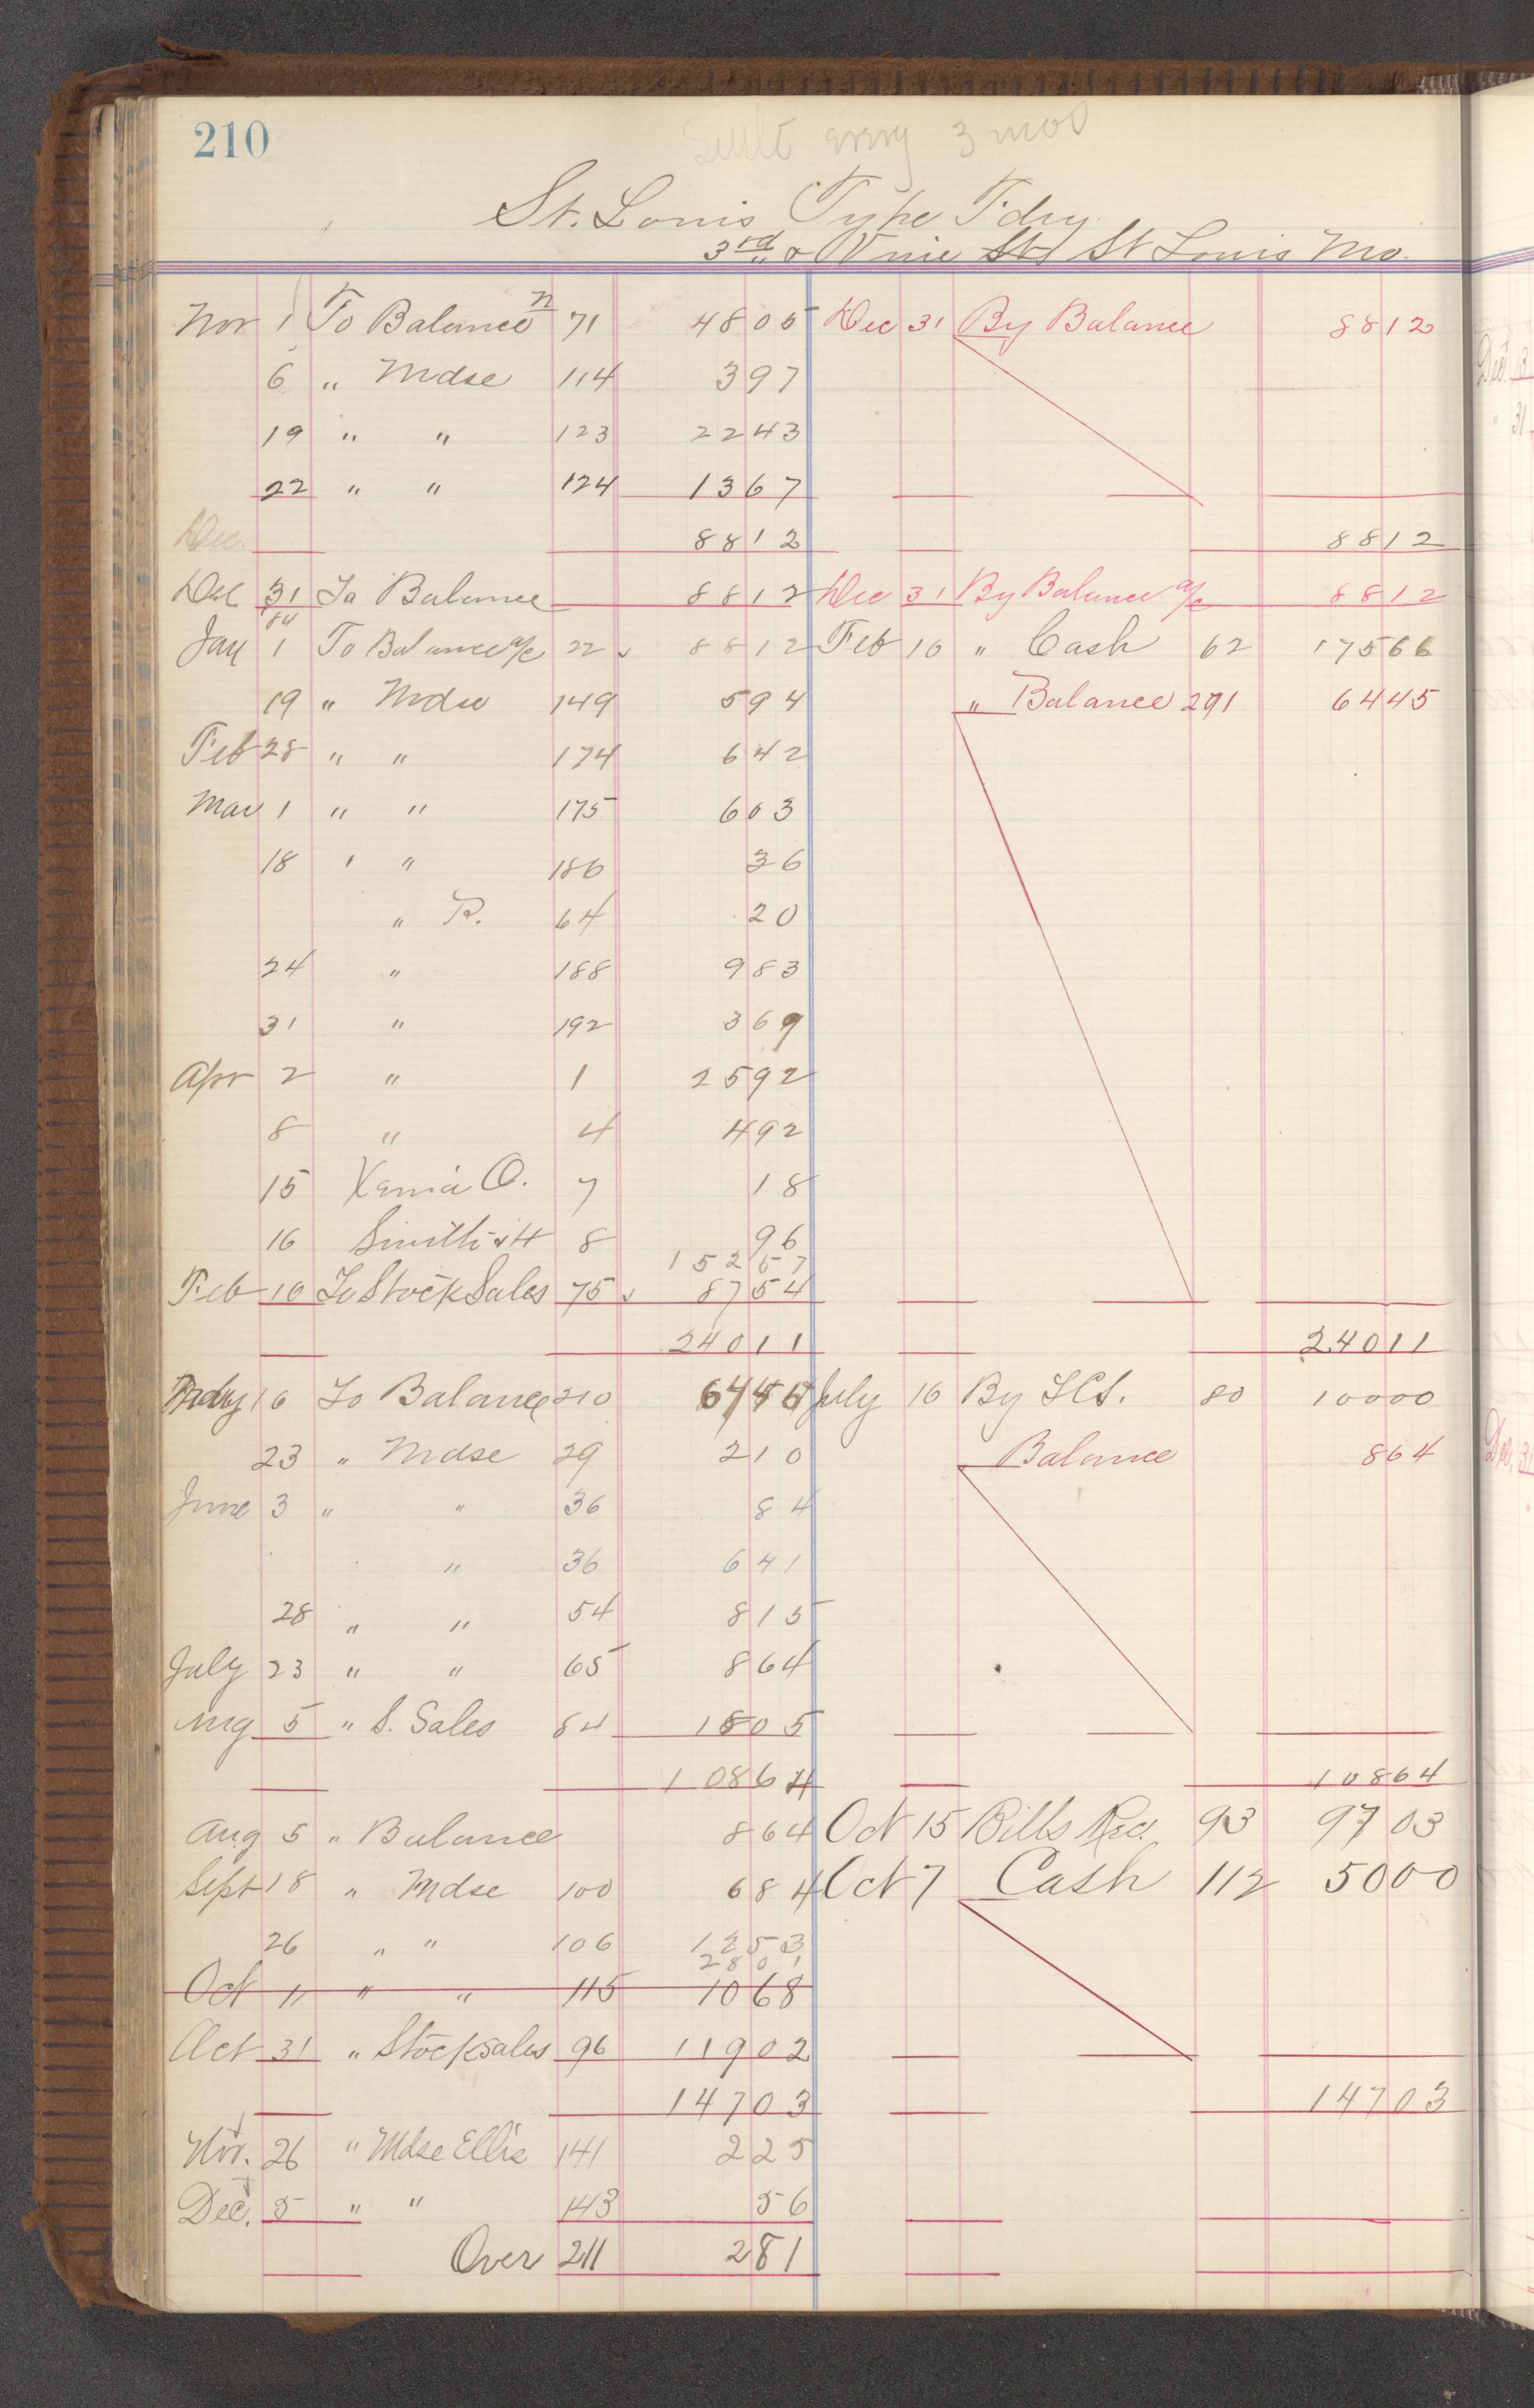 210
Settle every 3 mos
St. Louis Type Fdry.
3rd & Vine Sts St Louis Mo.
Nov 1 To Balance 71 4805 Dec 31 By Balance 8812
6 " Mdse 114 397
19 " " 123 2243
22 " " 124 1367
Dec. 8812 8812
Dec 31 To Balance 8812 Dec 31 By Balance a/c 8812
84
Jan 1 To Balance a/c 22 ✓ 8812 Feb 10 " Cash 62 17566
19 " Mdse 149 594 " Balance 291 6445
Feb 28 " " 174 642
Mar 1 " " 175 603
18 " " 186 36
" R. 64 20
24 " 188 983
31 " 192 369
Apr 2 " 1 2592
8 " 4 492
15 Xenia O. 7 18
16 Smith & H 8 96
15257
Feb 10 To Stock Sales 75 ✓ 8754
24011 24011
May 16 To Balance 210 6445 July 16 By 80 10000
23 " Mdse 29 210 Balance 864
June 3 " " 36 84
" 36 641
28 " " 54 815
July 23 " " 65 864
Aug 5 " S. Sales 84 1805
10864 10864
Aug 5 " Balance 864 Oct 15 Bills Rec. 93 9703
Sept 18 " Mdse 100 684 Oct 7 Cash 112 5000
26 " " 106 1253
2801
Oct 11 " " 115 1068
Oct 31 " Stock sales 96 11902
14703 14703
Nov. 26 " Mdse Ellis 141 225
Dec. 5 " " 143 56
Over 211 281